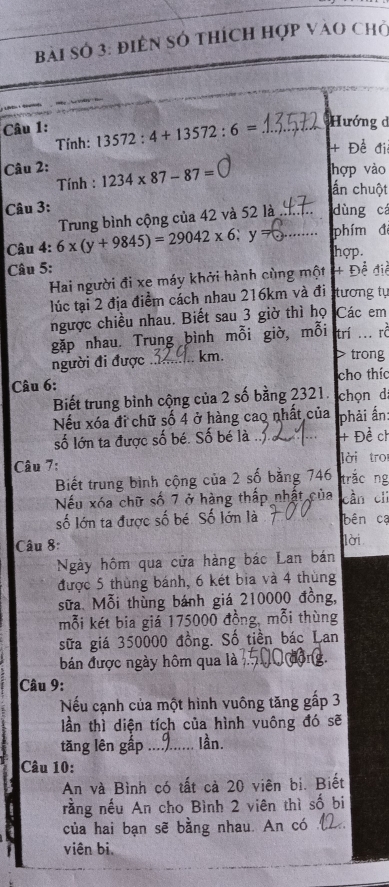 BÀI SỐ 3: ĐIỀN SỐ THÍCH HỢP VÀO CHỖ
Câu 1:
Tính: 13572 : 4 + 13572 : 6 = 13572
Câu 2:
Tính : 1234 x 87 – 87 = 0
Câu 3:
Trung bình cộng của 42 và 52 là ..47...
Câu 4: 6 x (y + 9845) = 29042 x 6; y = ........
Câu 5:
Hai người đi xe máy khởi hành cùng một
lúc tại 2 địa điểm cách nhau 216km và đi
ngược chiều nhau. Biết sau 3 giờ thì họ
gặp nhau. Trung bình mỗi giờ, mỗi
người đi được ......... km.
Câu 6:
Biết trung bình cộng của 2 số bằng 2321.
Nếu xóa đi chữ số 4 ở hàng cao nhất của
số lớn ta được số bé. Số bé là ..321...
Câu 7:
Biết trung bình cộng của 2 số bằng 746
Nếu xóa chữ số 7 ở hàng thấp nhất của
số lớn ta được số bé. Số lớn là 700
Câu 8:
Ngày hôm qua cửa hàng bác Lan bán
được 5 thùng bánh, 6 két bia và 4 thùng
sữa. Mỗi thùng bánh giá 210000 đồng,
mỗi két bia giá 175000 đồng, mỗi thùng
sữa giá 350000 đồng. Số tiền bác Lan
bán được ngày hôm qua là đồng.
Câu 9:
Nếu cạnh của một hình vuông tăng gấp 3
lần thì diện tích của hình vuông đó sẽ
tăng lên gấp ....9...... lần.
Câu 10:
An và Bình có tất cả 20 viên bi. Biết
rằng nếu An cho Bình 2 viên thì số bi
của hai bạn sẽ bằng nhau. An có .12..
viên bi.
Hướng d
+ Để đi
hợp vào
ấn chuột
dùng cá
phím đi
hợp.
+ Để điề
tương tự
Các em
trí ... rồ
> trong
cho thíc
chọn d
phải ấn
+ Để ch
lời tro
trắc ng
cần cli
bên cạ
lời